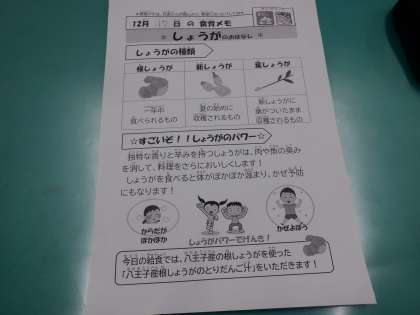 12月 日の食育メモ
しょうがのおはなし
しょうがの種類
根しょうが 新しょうが 葉しょうが
一年中
食べられるもの
夏の始めに
収穫されるもの
新しょうがに
葉がついたまま
収穫されるもの
☆すごいぞ！！しょうがのパワー☆
独特な香りと辛みを持つしょうがは、肉や魚の臭み
を消して、料理をさらにおいしくします！
しょうがを食べると体がぽかぽか温まり、かぜ予防
にもなります！
からだが
ぽかぽか
しょうがパワーでげんき！
かぜよぼう
今日の給食では、八王子産の根しょうがを使った
「八王子産根しょうがのとりだんご汁」をいただきます！